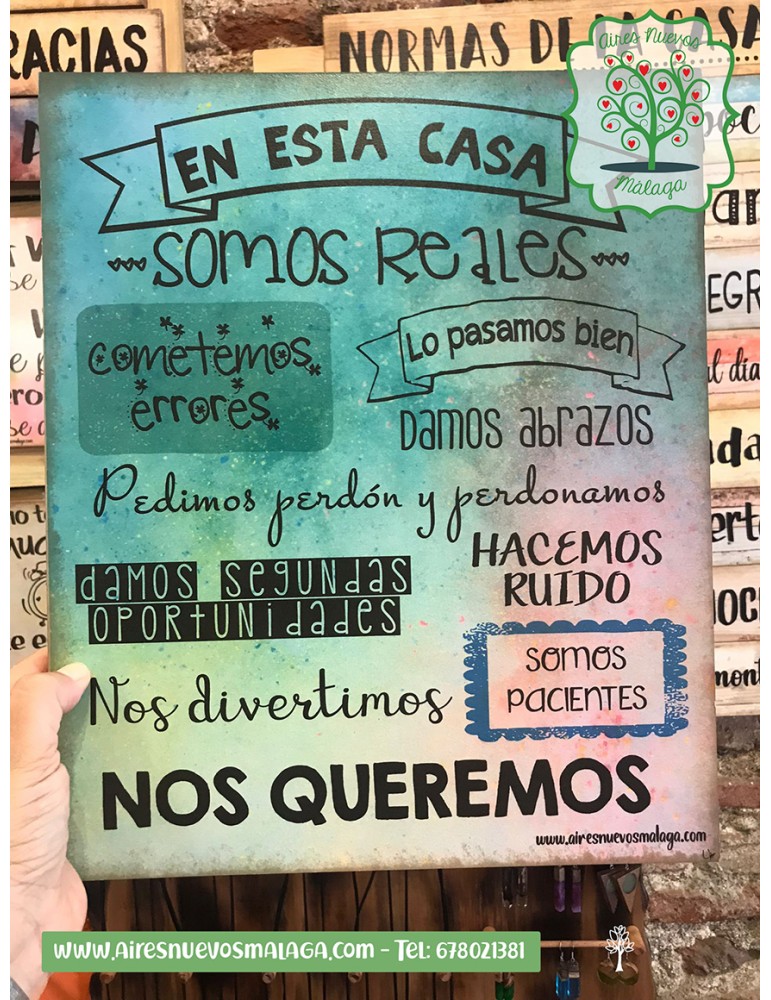 RACIAS
NORMAS DE LA CASA
Aires Nuevos
Málaga
EN ESTA CASA
SOMOS REALES
COMETEMOS
ERRORES
Lo pasamos bien
DAMOS ABRAZOS
Pedimos perdón y perdonamos
HACEMOS
RUIDO
DAMOS SEGUNDAS
OPORTUNIDADES
SOMOS
PACIENTES
Nos divertimos
NOS QUEREMOS
www.airesnuevosmalaga.com
EGR
al día
ada
ert
OCI
mont
WWW.AIRESNUEVOSMALAGA.COM - TEL: 678021381